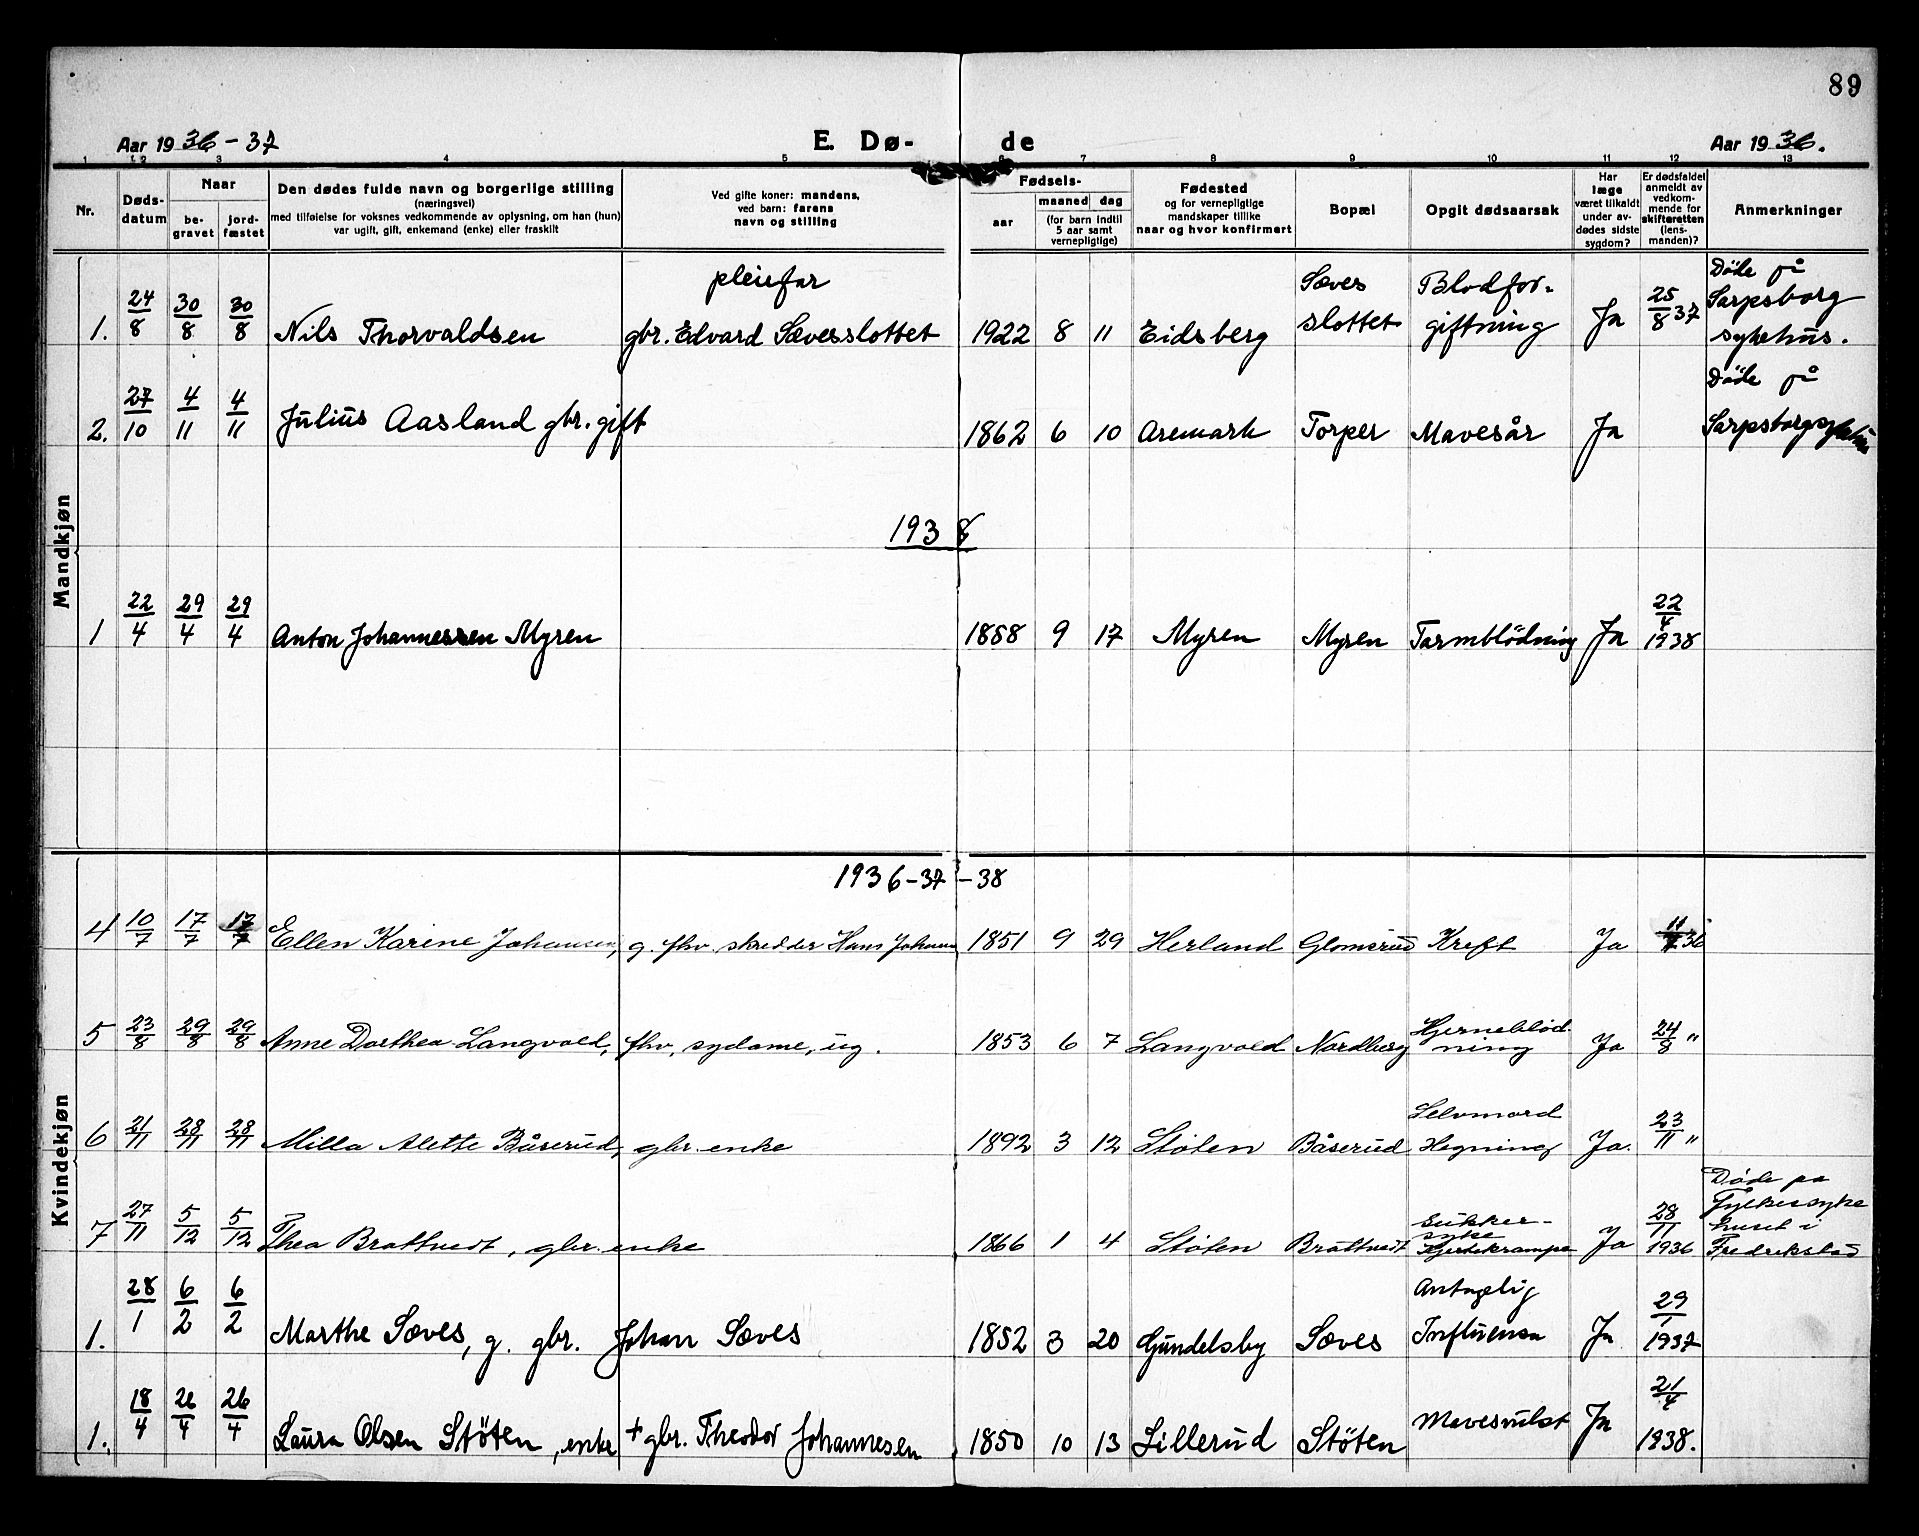 89
Aar 1936-37 E. Dø- de Aar 1936.
1 2 3 4 5 6 7 8 9 10 11 12 13
Nr. Døds-datum Naar be-gravet jord-fæstet Den dødes fulde navn og borgerlige stilling (næringsvei) med tilføielse for voksnes vedkommende av oplysning, om han (hun) var ugift, gift, enkemand (enke) eller fraskilt Ved gifte koner: mandens, ved barn: farens navn og stilling Fødsels- aar maaned dag (for barn indtil 5 aar samt vernepligtige) Fødested og for vernepligtige mandskaper tillike naar og hvor konfirmert Bopæl Opgit dødsaarsak Har læge været tilkaldt under av-dødes sidste sygdom? Er dødsfaldet anmeldt av vedkom-mende for skifteretten (lens-manden)? Anmerkninger
Mandkjøn
1. 24/8 30/8 30/8 Nils Thorvaldsen pleiefar gbr. Edvard Sævesslottet 1922 8 11 Eidsberg Sæves slottet Blodfor-giftning Ja 25/8 37 Døde på Sarpsborg sykehus.
2. 27/10 4/11 4/11 Julius Aasland gbr. gift 1862 6 10 Aremark Torper Mavesår Ja Døde på
1938
1 22/4 29/4 29/4 Anton Johannessen Myren 1858 9 17 Myren Myren Tarmblödning Ja 22/4 1938
Kvindekjøn
1936-37-38
4 10/7 17/7 17/7 Ellen Karine Johansen, g. fhv. skredder Hans Johansen 1851 9 29 Herland Glomsrud Kreft Ja 11/7 36
5 23/8 29/8 29/8 Anne Dorthea Langvold, fhv. sydame, ug. 1853 6 7 Langvold Nordberg Hjerneblød-ning Ja 24/8 "
6 21/11 28/11 28/11 Milla Alette Båserud, gbr. enke 1892 3 12 Støten Båserud Selvmord Hegning Ja. 23/11 "
7 27/11 5/12 5/12 Thea Brattvedt, gbr. enke 1866 1 4 Støten Brattvedt Sukker-syke Hjertekrampe Ja 28/11 1936 Døde på Fylkessyke huset i Fredrikstad
1. 28/1 6/2 6/2 Marthe Sæves, g. gbr. Johan Sæves 1852 3 20 Gundelsby Sæves Antagelig Influensa Ja 29/1 1937
1. 18/4 26/4 26/4 Laura Olsen Stöten, enke + gbr. Theodor Johannesen 1850 10 13 Lillerud Stöten Mavesvulst Ja 21/4 1938.